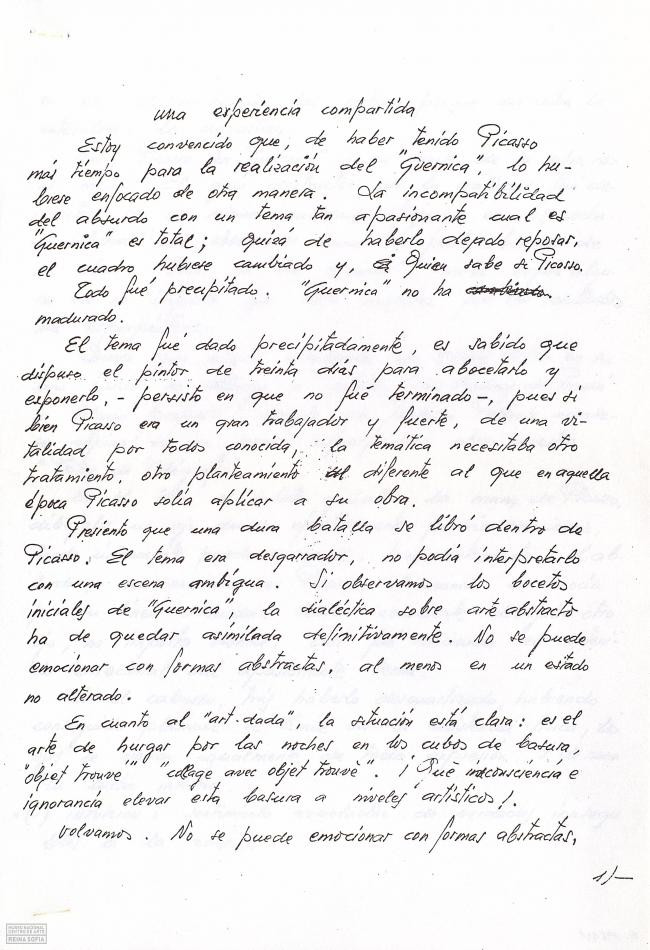 una experiencia compartida
Estoy convencido que, de haber tenido Picasso
más tiempo para la realización del "Guernica", lo hu-
biese enfocado de otra manera. La incompatibilidad
del absurdo con un tema tan apasionante cual es
"Guernica" es total; Quizá de haberlo dejado reposar,
el cuadro hubiese cambiado y, Quien sabe si Picasso.
Todo fué precipitado. "Guernica" no ha
madurado.
El tema fué dado precipitadamente, es sabido que
dispuso el pintor de treinta días para abocetarlo y
exponerlo, - persisto en que no fué terminado -, pues si
bien Picasso era un gran trabajador y fuerte, de una vi-
talidad por todos conocida, la temática necesitaba otro
tratamiento, otro planteamiento diferente al que en aquella
época Picasso solía aplicar a su obra.
Presiento que una dura batalla se libró dentro de
Picasso. El tema era desgarrador, no podía interpretarlo
con una escena ambigua. Si observamos los bocetos
iniciales de "Guernica", la dialéctica sobre arte abstracto
ha de quedar asimilada definitivamente. No se puede
emocionar con formas abstractas, al menos en un estado
no alterado.
En cuanto al "art-dada", la situación está clara: es el
arte de hurgar por las noches en los cubos de basura,
"objet trouvé" "collage avec objet trouvè". ¡Qué inconsciencia e
ignorancia elevar ésta basura a niveles artísticos!.
Volvamos. No se puede emocionar con formas abstractas,
1/-
MUSEO NACIONAL
CENTRO DE ARTE
REINA SOFIA